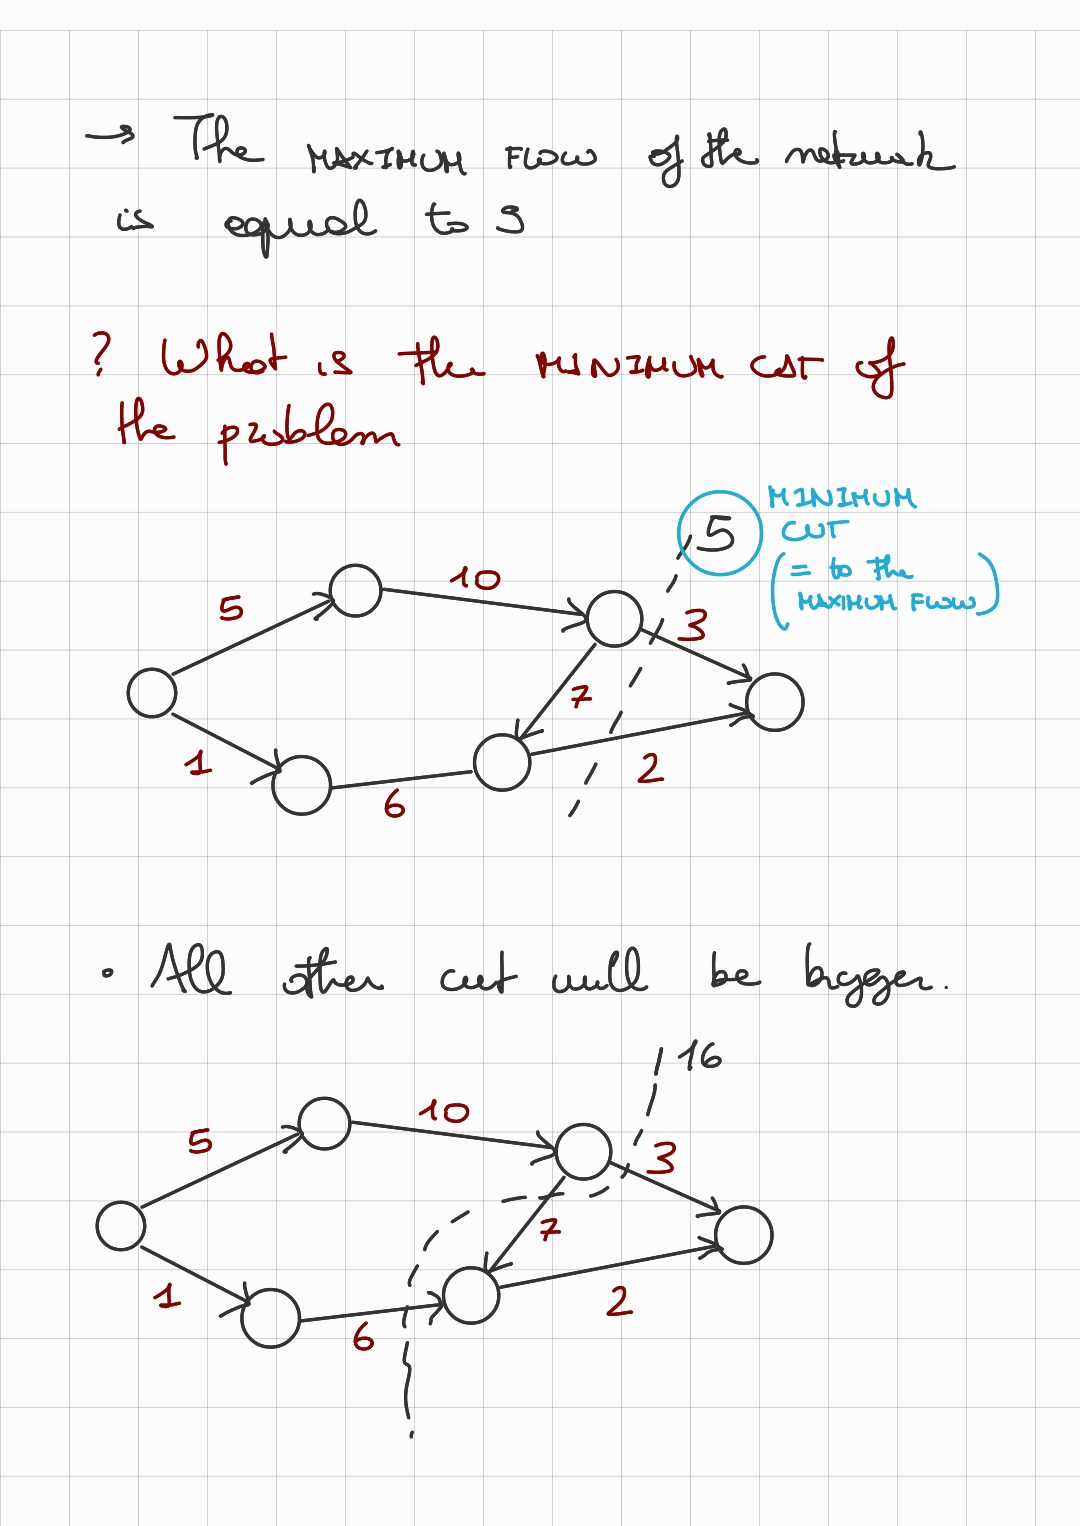 → The MAXIMUM FLOW of the network
is equal to 5
? What is the MINIMUM CUT of
the problem
5
MINIMUM
CUT
(= to the
MAXIMUM FLOW)
5
10
3
7
1
6
2
• All other cut will be bigger.
16
5
10
3
7
1
6
2